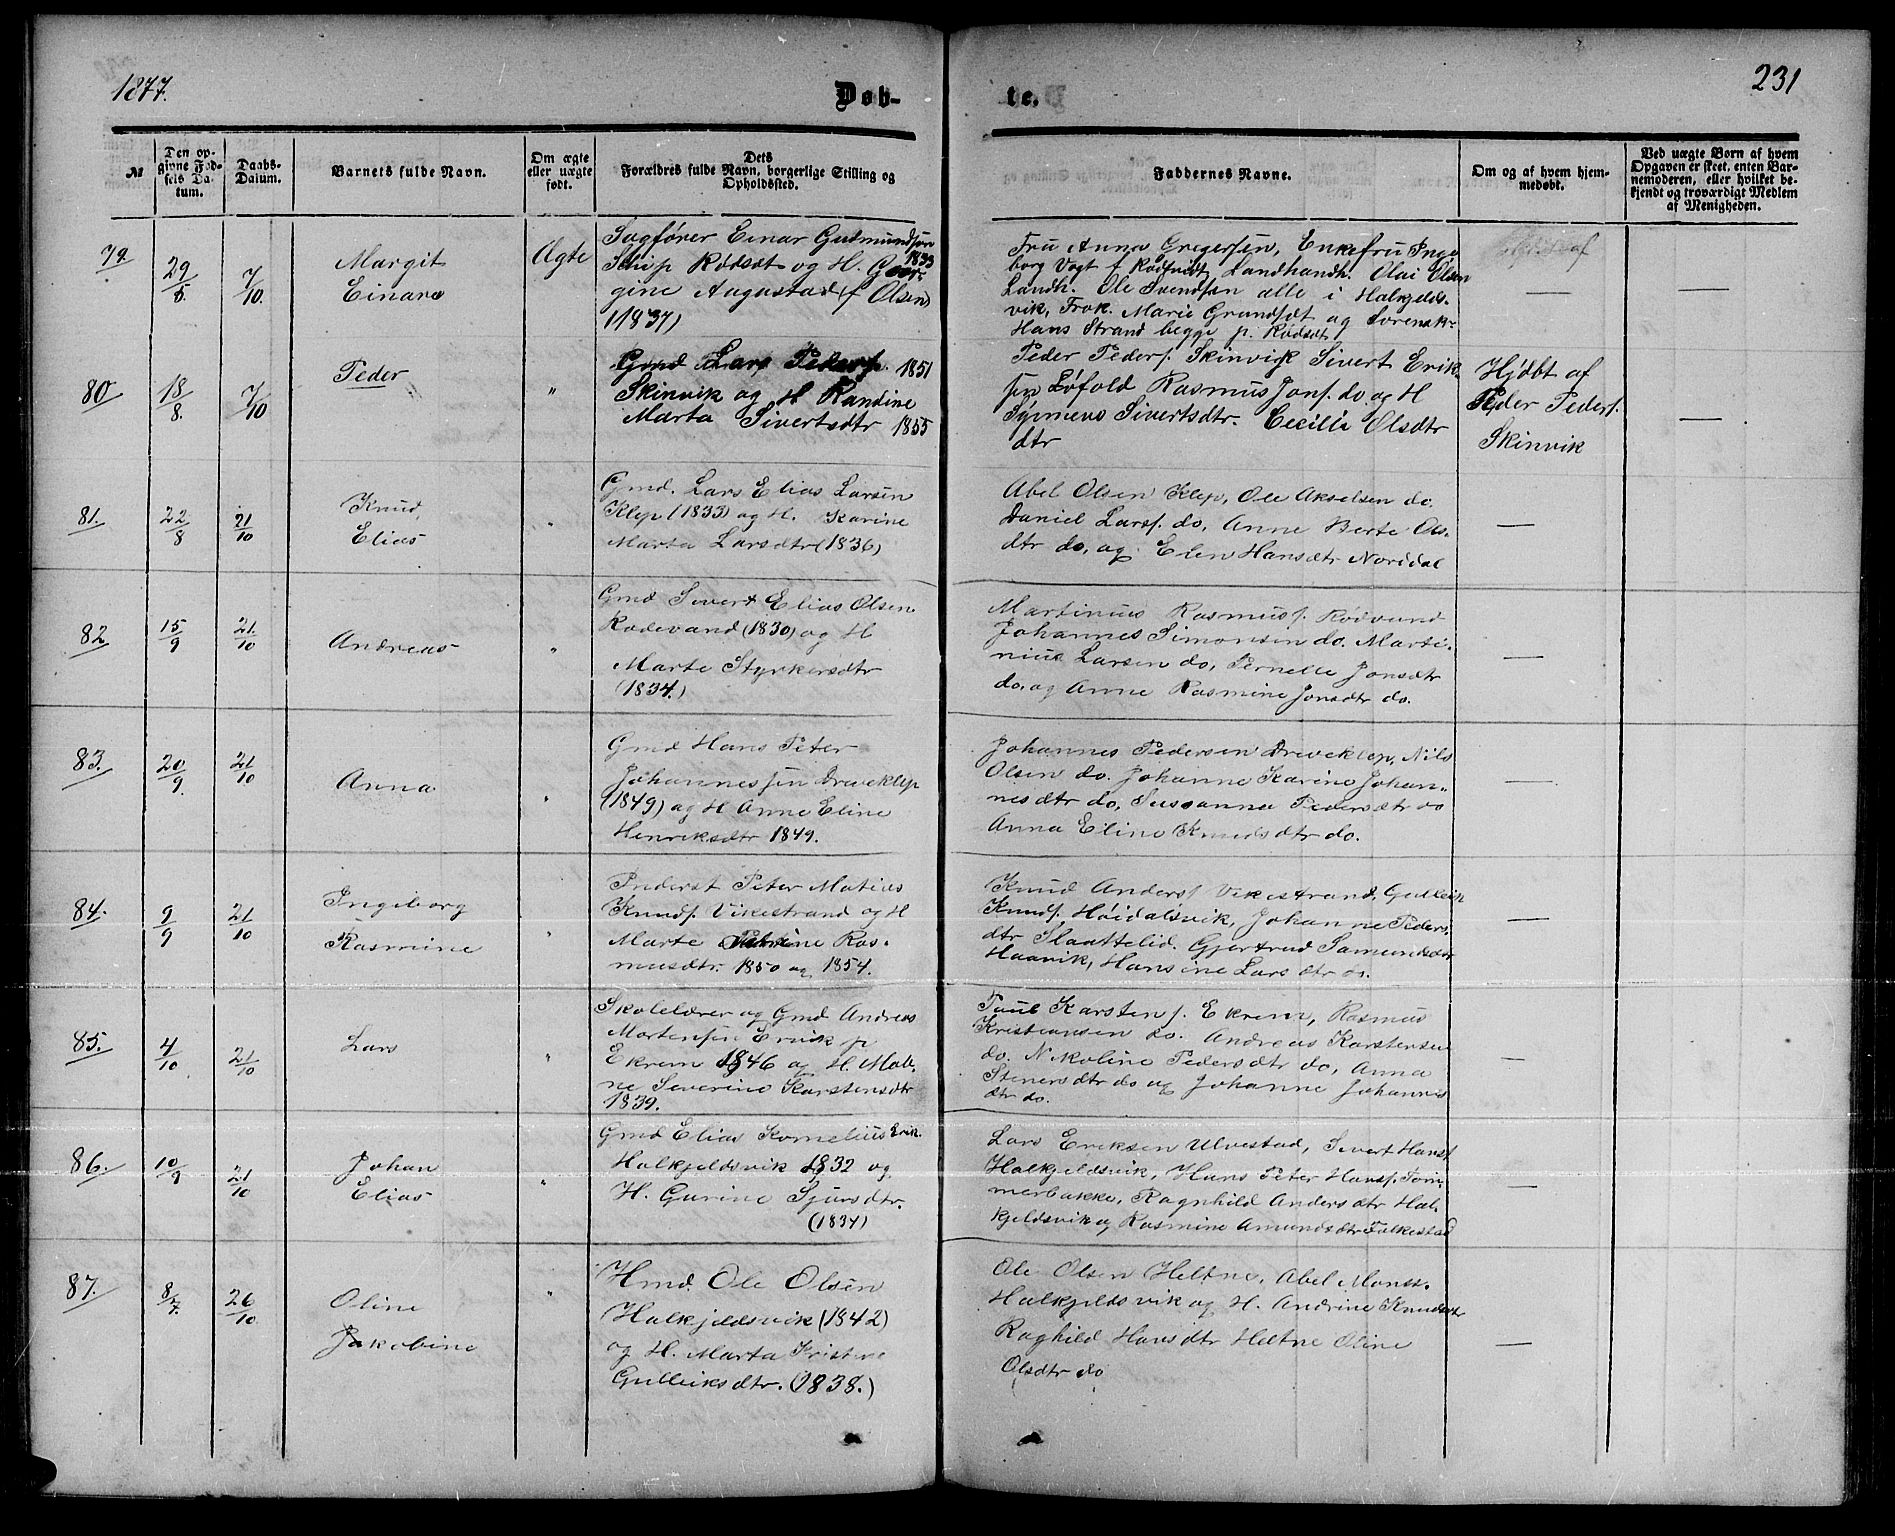 1877.
Døb-
te.
231
№
Den op-
givne Fød-
sels Da-
tum.
Daabs-
Datum.
Barnets fulde Navn.
Om ægte
eller uægte
født.
Dets
Forældres fulde Navn, borgerlige Stilling og
Opholdssted.
Faddernes Navne.
Om og af hvem hjem-
medøbt.
Ved uægte Børn af hvem
Opgaven er skeet, enten Bar-
nemoderen, eller hvilket be-
kjendt og troværdigt Medlem
af Menigheden.
79
29/5
7/10
Margit
Einara
Ægte
Sagfører Einar Gudmundsen
Schip Rødsæt og H. Geor- 1833
gine Augusta f Olsen
(1837)
Fru Anna Gregersen, Enkefru Inge
borg Vogt f Rødsædt, Landhandh. Olai Olsen
Landh. Ole Svendsen alle i Halkjelds-
vik, Frøk. Marie Grandsæt og Sorenskr
Hans Strand begge p. Rødsæt
—
—
80
18/8
7/10
Peder
"
Gmd Lars Peders. 1851
Skinvik og H Randine
Marta Sivertsdtr 1855
Peder Peders. Skinvik Sivert Erik-
sen Løfold Rasmus Jons. do og H
Synneva Sivertsdtr. Cecilie Olsdtr
dtr
Hjdbt af
Peder Peders.
Skinvik
—
81.
22/8
21/10
Knud
Elias
"
Gmd. Lars Elias Larsen
Klep (1833) og H. Karine
Marta Larsdtr (1836)
Abel Olsen Klep, Ole Akselsen do.
Daniel Lars. do, Anne Berte Ols-
dtr do, og Elen Hansdtr Norddal
—
82
15/9
21/10
Andreas
"
Gmd Sivert Elias Olsen
Rødevand (1830) og H
Marte Styrkersdtr
(1834.)
Martinus Rasmuss. Rødvand
Johannes Simonsen do. Marti-
nius Larsen do, Pernelle Jonsdtr
do, og Anne Rasmine Jonsdtr do.
—
83.
20/9
21/10
Anna
"
Gmd Hans Peter
Johannessen Dreveklep
(1849) og H Anne Eline
Henriksdtr 1849.
Johannes Pedersen Dreveklep, Nils
Olsen do. Johanne Karine Johan-
nesdtr do, Susanna Pedersdtr do
Anna Eline Knudsdtr do.
—
84.
9/9
21/10
Ingiborg
Rasmine
"
Inderst Peter Matias
Knuds. Vikestrand og H
Marte Petrine Ras-
musdtr. 1850 og 1854.
Knud Anders. Vikestrand, Gulleik
Knuds. Høidalsvik, Johanne Peders-
dtr Slaattelid. Gjertrud Samundsdtr
Haavik, Hansine Larsdtr do.
—
85.
4/10
21/10
Lars
"
Skolelærer og Gmd Andreas
Mortensen Ervik p
Ekrem 1846 og H. Mali-
ne Severine Karstensdtr
1839.
Paul Karstens. Ekrem, Rasmus
Kristiansen do. Andreas Karstensen
do. Nikoline Pedersdtr do, Anna
Stenersdtr do og Johanne Johannes
dtr do.
—
86.
10/9
21/10
Johan
Elias
"
Gmd Elias Kornelius Erik.
Halkjeldsvik 1832 og
H. Gurine Sjursdtr.
(1834)
Lars Eriksen Ulvestad, Sivert Hans.
Halkjeldsvik, Hans Peter Hans. Tøm-
merbakke, Ragnhild Andersdtr Hal-
kjeldsvik og Rasmine Amundsdtr Folkestad
—
87.
8/7.
26/10
Oline
Jakobine
"
Hmd. Ole Olsen
Halkjeldsvik (1842)
og H. Marta Kristine
Gulleiksdtr. (1838.)
Ole Olsen Heltne, Abel Monss.
Halkjeldsvik og H. Andrine Knudsdtr
Raghild Hansdtr Heltne Oline
Olsdtr do
—